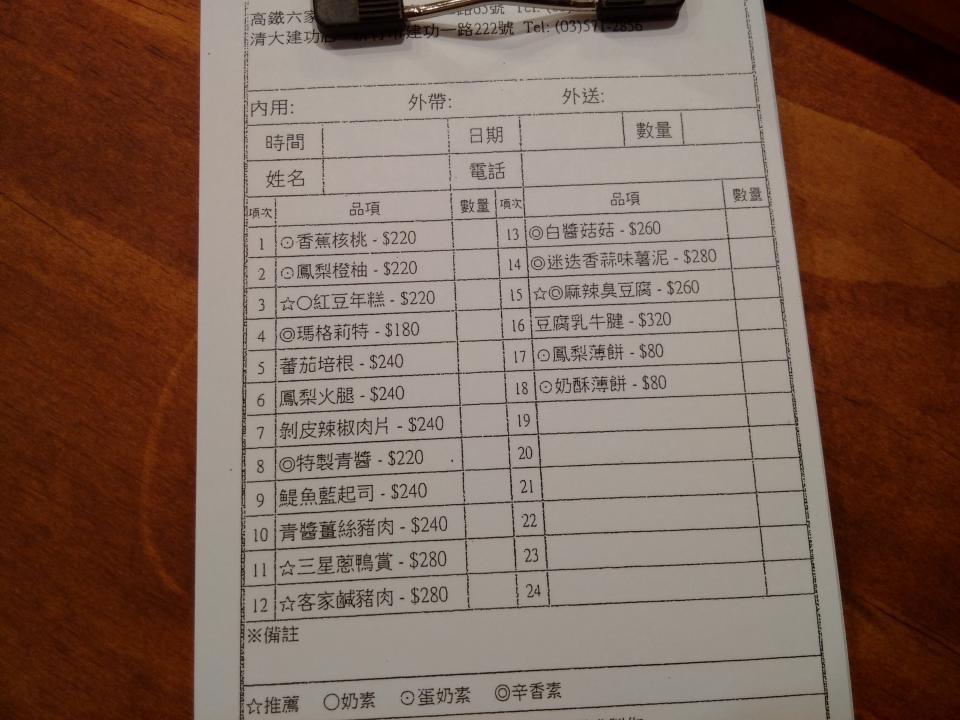 高鐵六家
清大建功 建功一路222號 Tel: (03)571-2856
內用: 外帶: 外送:
時間 日期 數量
姓名 電話
項次 品項 數量 項次 品項 數量
1 ⊙香蕉核桃 - $220 13 ◎白醬菇菇 - $260
2 ⊙鳳梨橙柚 - $220 14 ◎迷迭香蒜味薯泥 - $280
3 ☆○紅豆年糕 - $220 15 ☆◎麻辣臭豆腐 - $260
4 ◎瑪格莉特 - $180 16 豆腐乳牛腱 - $320
5 蕃茄培根 - $240 17 ⊙鳳梨薄餅 - $80
6 鳳梨火腿 - $240 18 ⊙奶酥薄餅 - $80
7 剝皮辣椒肉片 - $240 19
8 ◎特製青醬 - $220 20
9 鯷魚藍起司 - $240 21
10 青醬薑絲豬肉 - $240 22
11 ☆三星蔥鴨賞 - $280 23
12 ☆客家鹹豬肉 - $280 24
※備註
☆推薦 ○奶素 ⊙蛋奶素 ◎辛香素